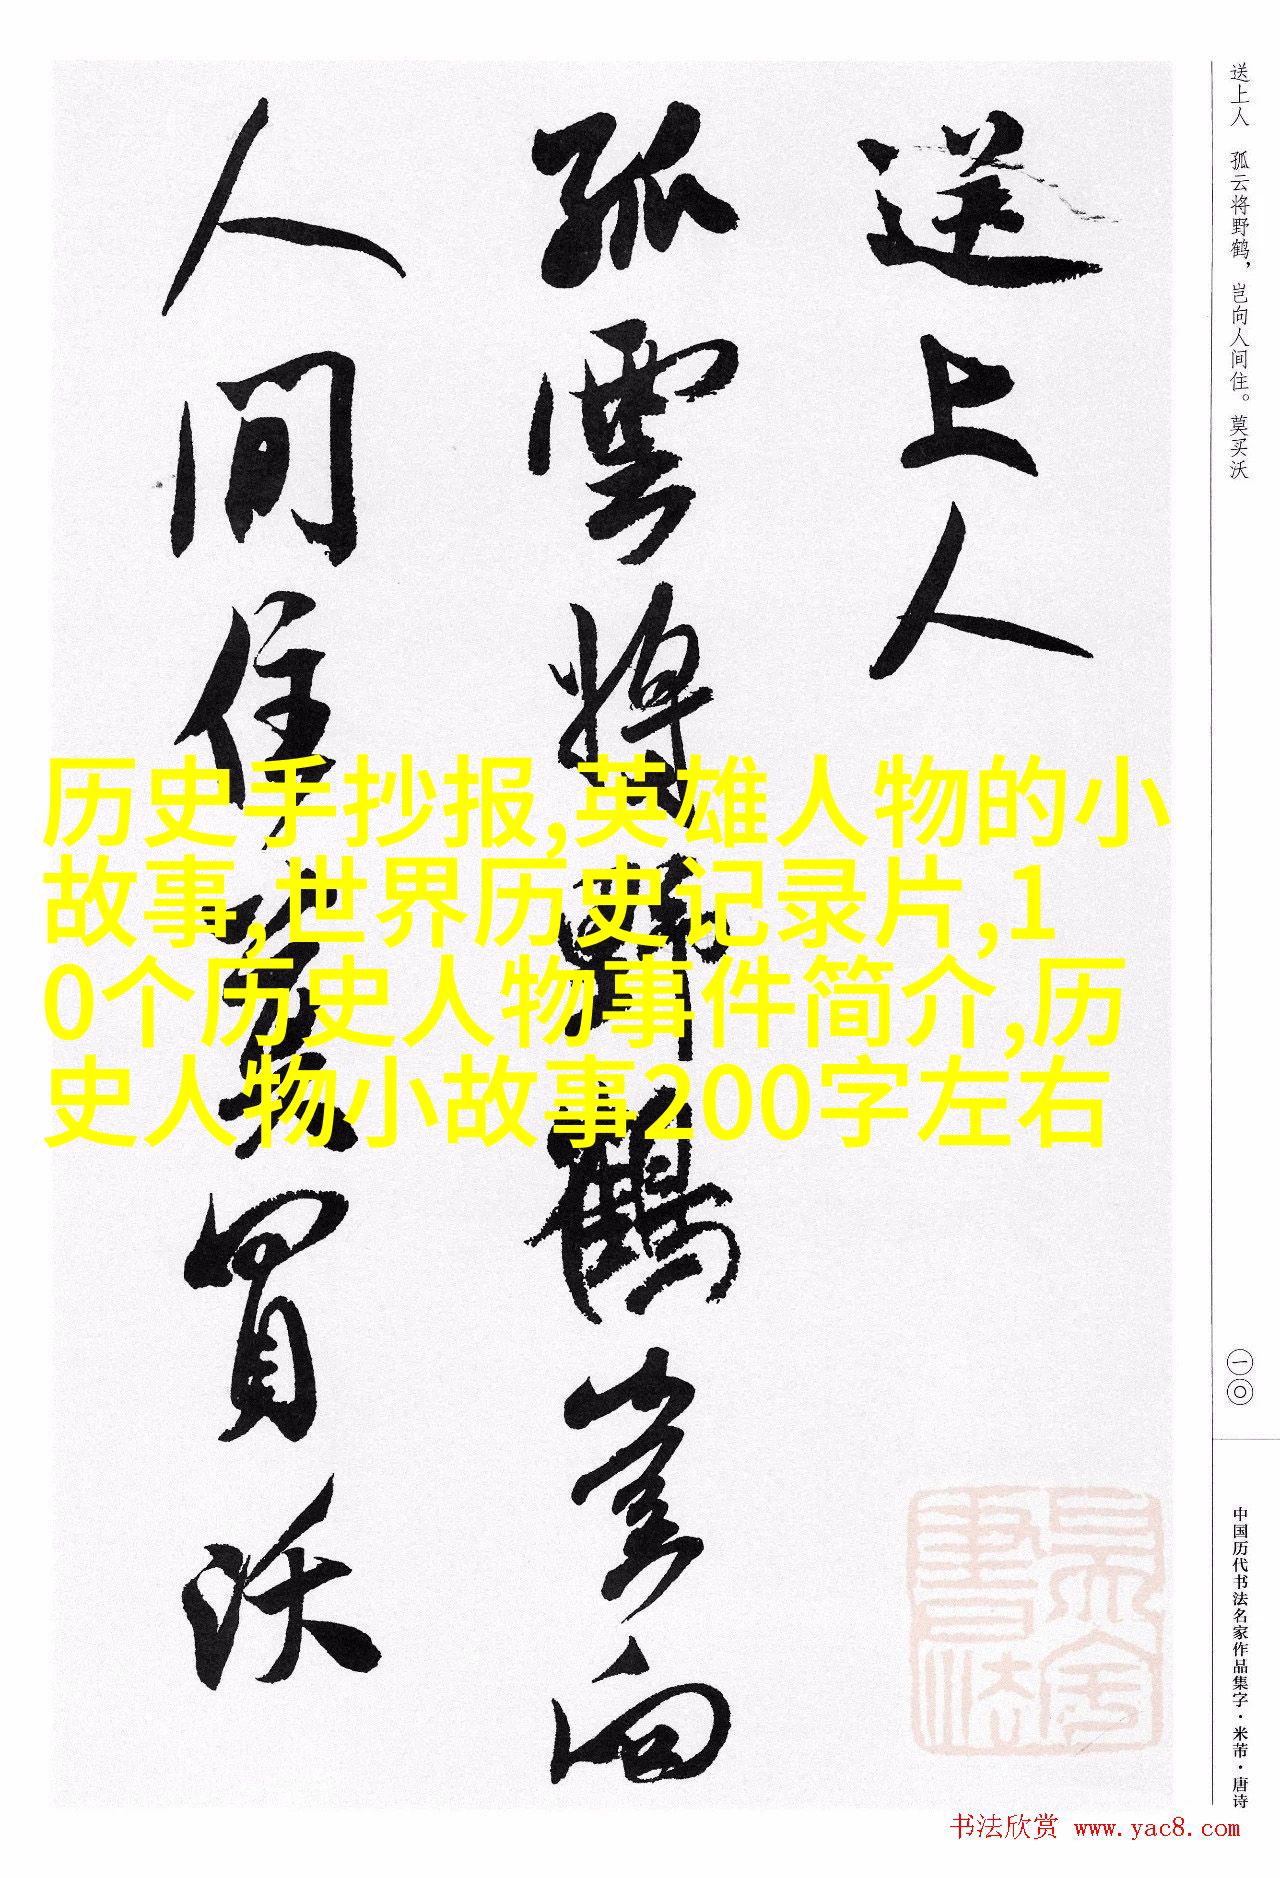 送上人
孤雲將野鶴豈向
人間住莫買沃
送上人　孤云将野鹤，岂向人间住。莫买沃
一〇
中国历代书法名家作品集字·米芾·唐诗
历史手抄报,英雄人物的小
故事,世界历史记录片,1
0个历史人物事件简介,历
史人物小故事200字左右
书法欣赏 www.yac8.com